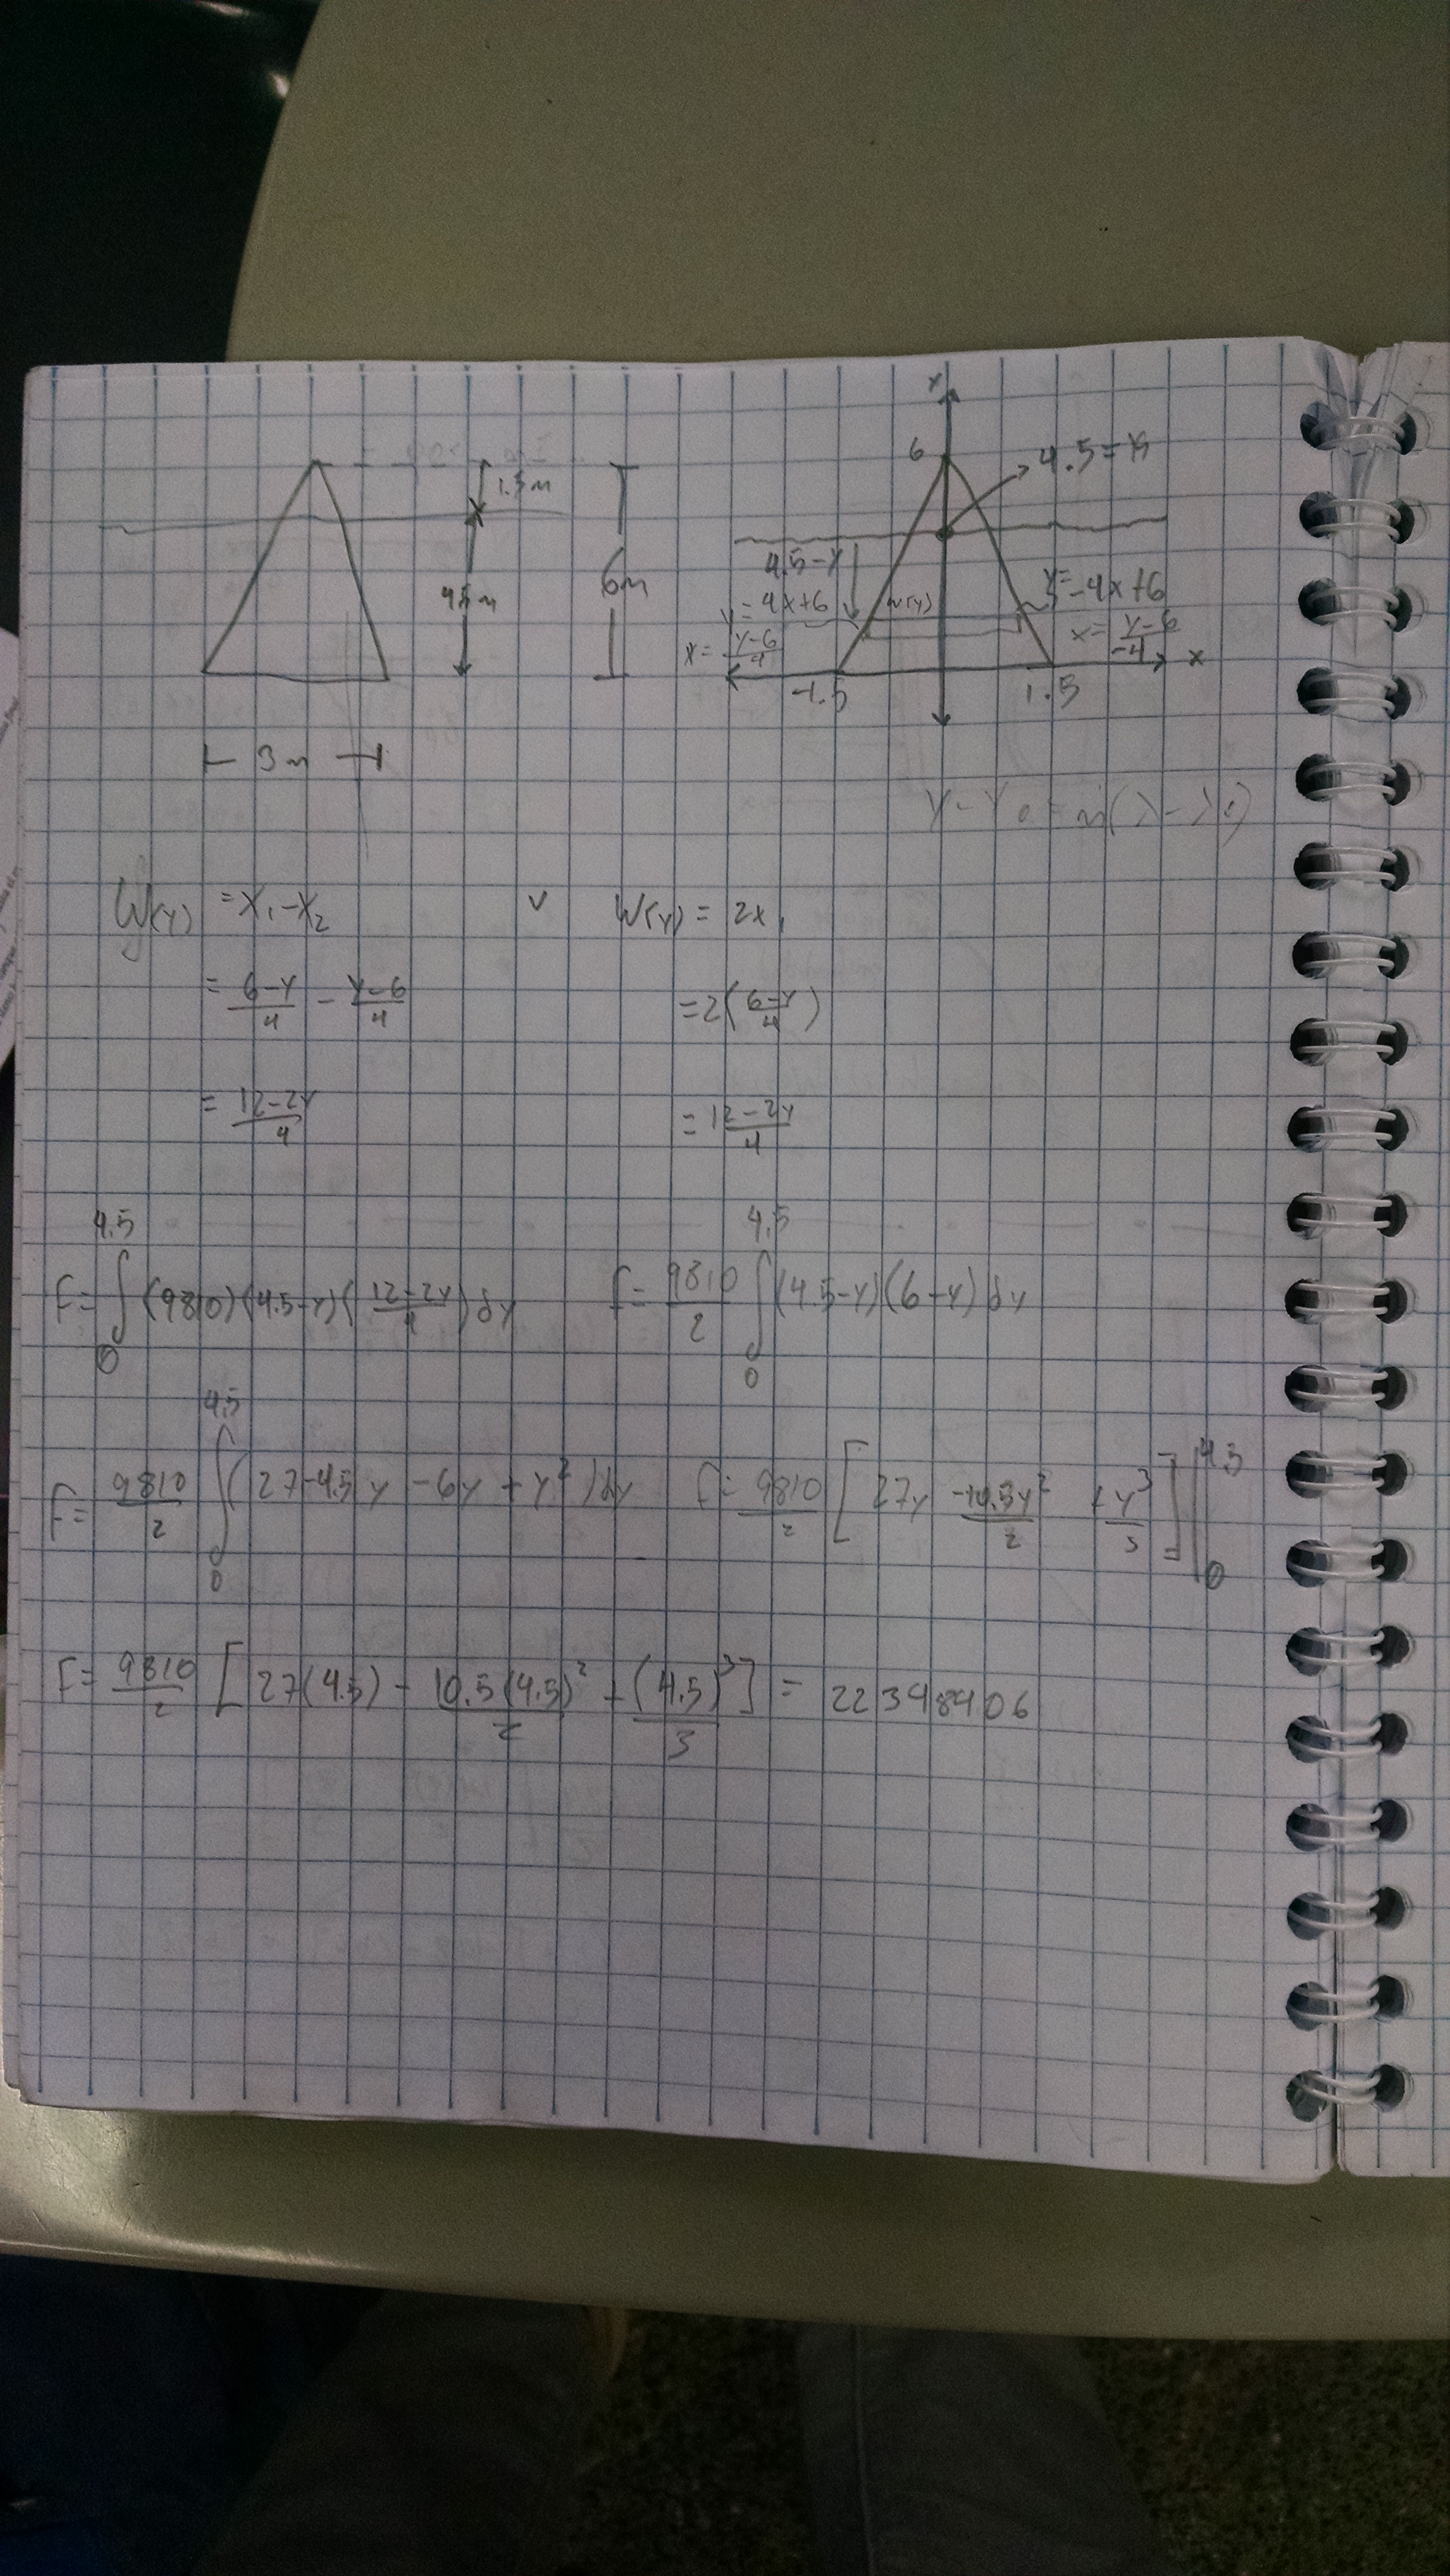 1.5m
4.5m
6m
3m
y
6
4.5 = y
4.5-y
y = 4x+6
x = \frac{y-6}{4}
w(y)
y = -4x+6
x = \frac{y-6}{-4}
x
-1.5
1.5
W(y) = x₁-x₂ v W(y) = 2x₁
= \frac{6-y}{4} - \frac{y-6}{4} = 2(\frac{6-y}{4})
= \frac{12-2y}{4} = \frac{12-2y}{4}
F = \int_0^{4.5} (9810)(4.5-y)(\frac{12-2y}{4}) dy F = \frac{9810}{2} \int_0^{4.5} (4.5-y)(6-y) dy
F = \frac{9810}{2} \int_0^{4.5} (27-4.5y-6y+y²) dy F = \frac{9810}{2} [27y - \frac{10.5y²}{2} + \frac{y³}{3}] |_0^{4.5}
F = \frac{9810}{2} [27(4.5) - \frac{10.5(4.5)²}{2} + \frac{(4.5)³}{3}] = 22348406